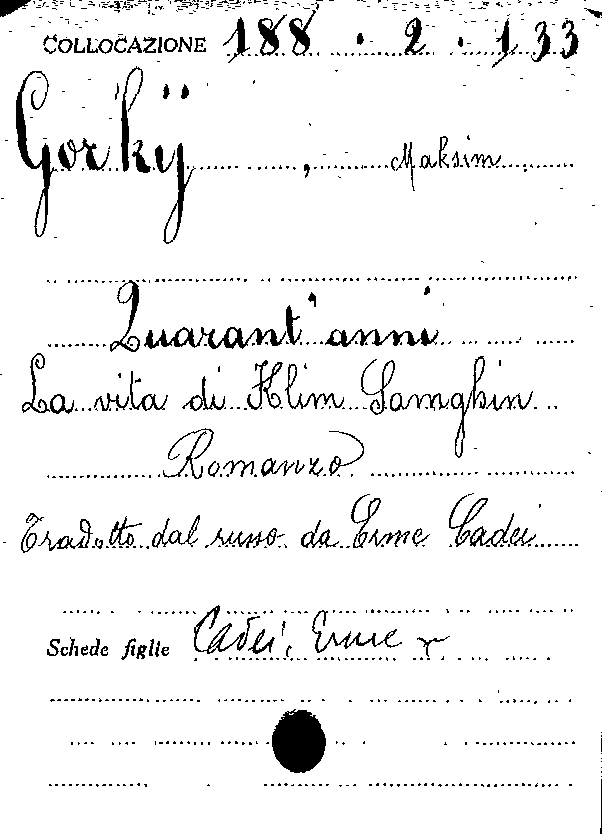 COLLOCAZIONE 188.2.133
Gor'kij, Maksim
Quarant'anni
La vita di Klim Samghin
Romanzo
Tradotto dal russo da Erme Cadei
Schede figlie Cadei, Erme